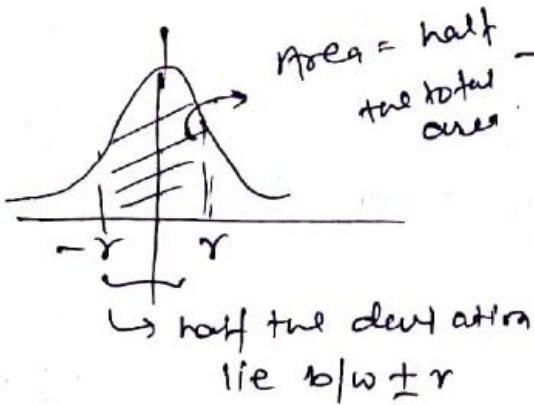 Area = half
the total
area
- r r
half the deviation
lie b/w ± r